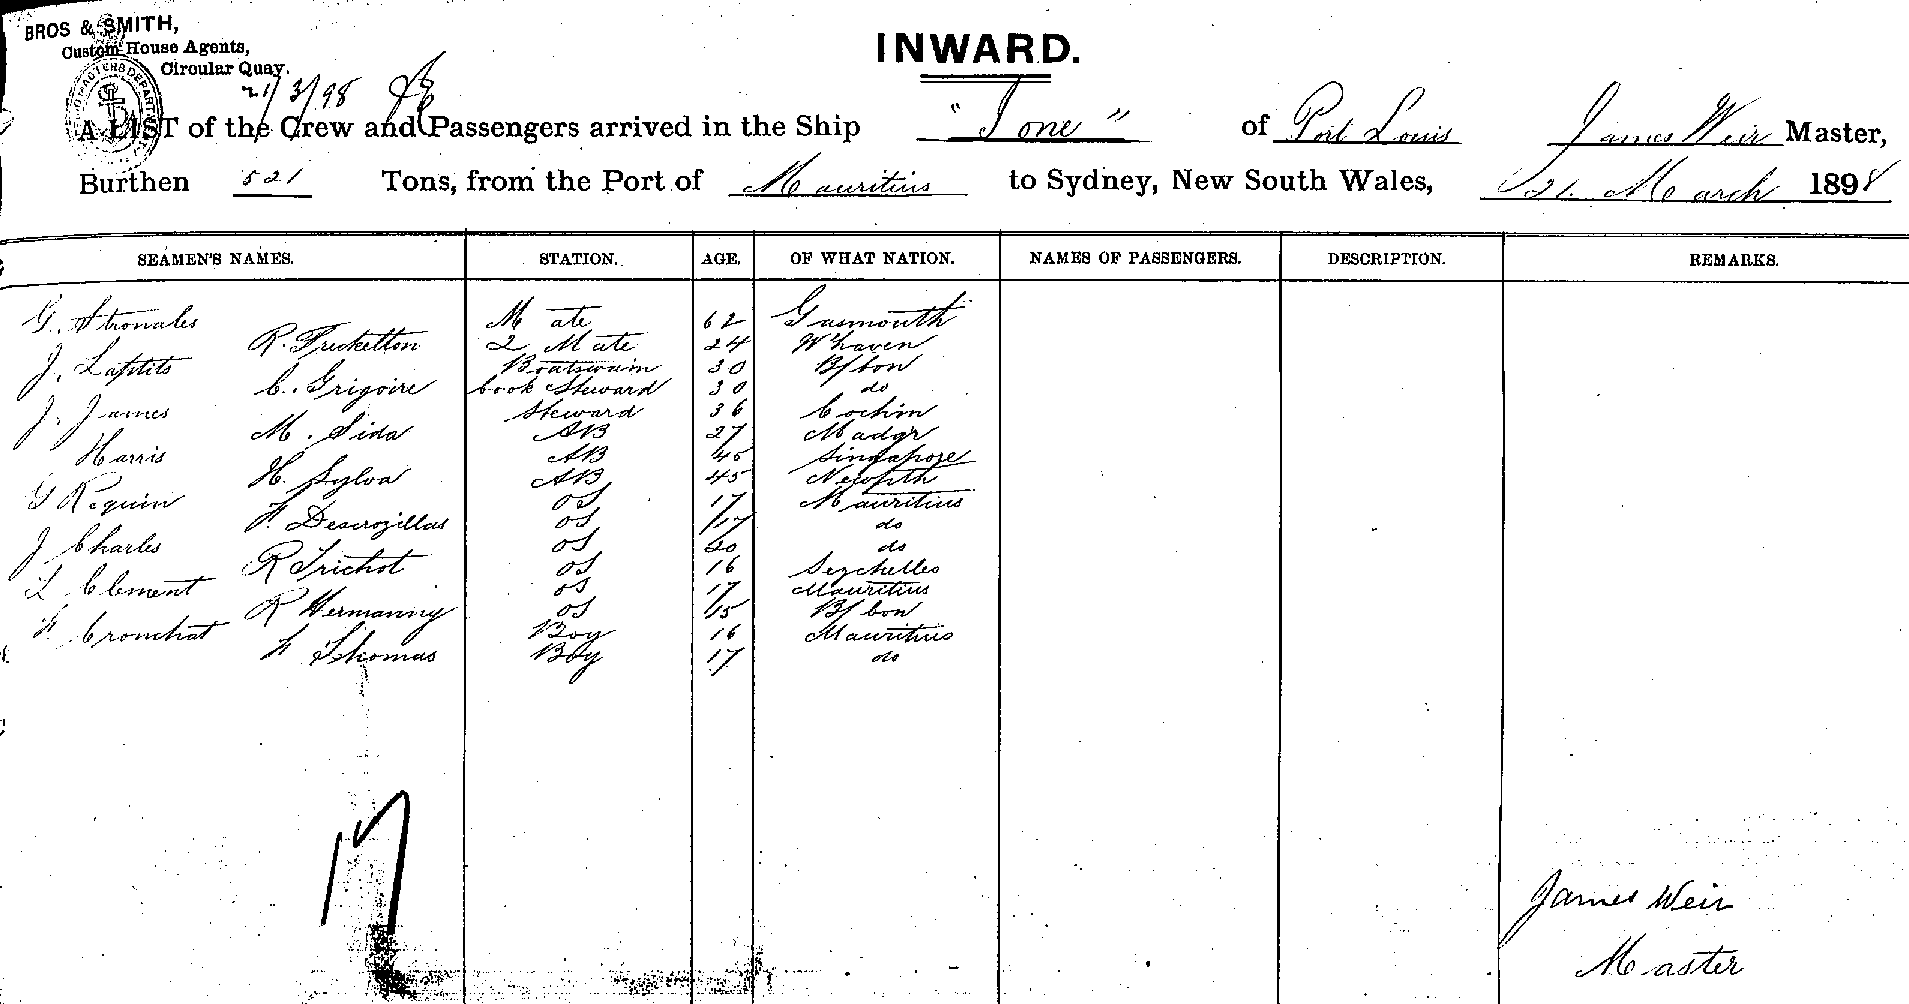 BROS & SMITH,
Custom House Agents,
Circular Quay.
21/3/98
INWARD.
A LIST of the Crew and Passengers arrived in the Ship "Ione" of Port Louis James Weir Master,
Burthen 521 Tons, from the Port of Mauritius to Sydney, New South Wales, 21 March 1898
SEAMEN'S NAMES. STATION. AGE. OF WHAT NATION. NAMES OF PASSENGERS. DESCRIPTION. REMARKS.
G. Stronales Mate 62
R. Tricketton 2 Mate 24 W'haven
J. Laptits Boatswain 30 B/bon
C. Grigoire Cook Steward 30 do
J. James Steward 36 Cochin
M. Sida AB 27 Madgr
Harris AB 45 Singapore
H. Sylva AB 45
G Requin OS 17 Mauritius
F. Descrozillas OS 17 do
J Charles OS 20 do
R Trichot OS 16 Seychelles
L Clement OS 17 Mauritius
R Hermanny OS 15 B/bon
F Cronchat Boy 16 Mauritius
F Thomas Boy 17 do
17
James Weir
Master